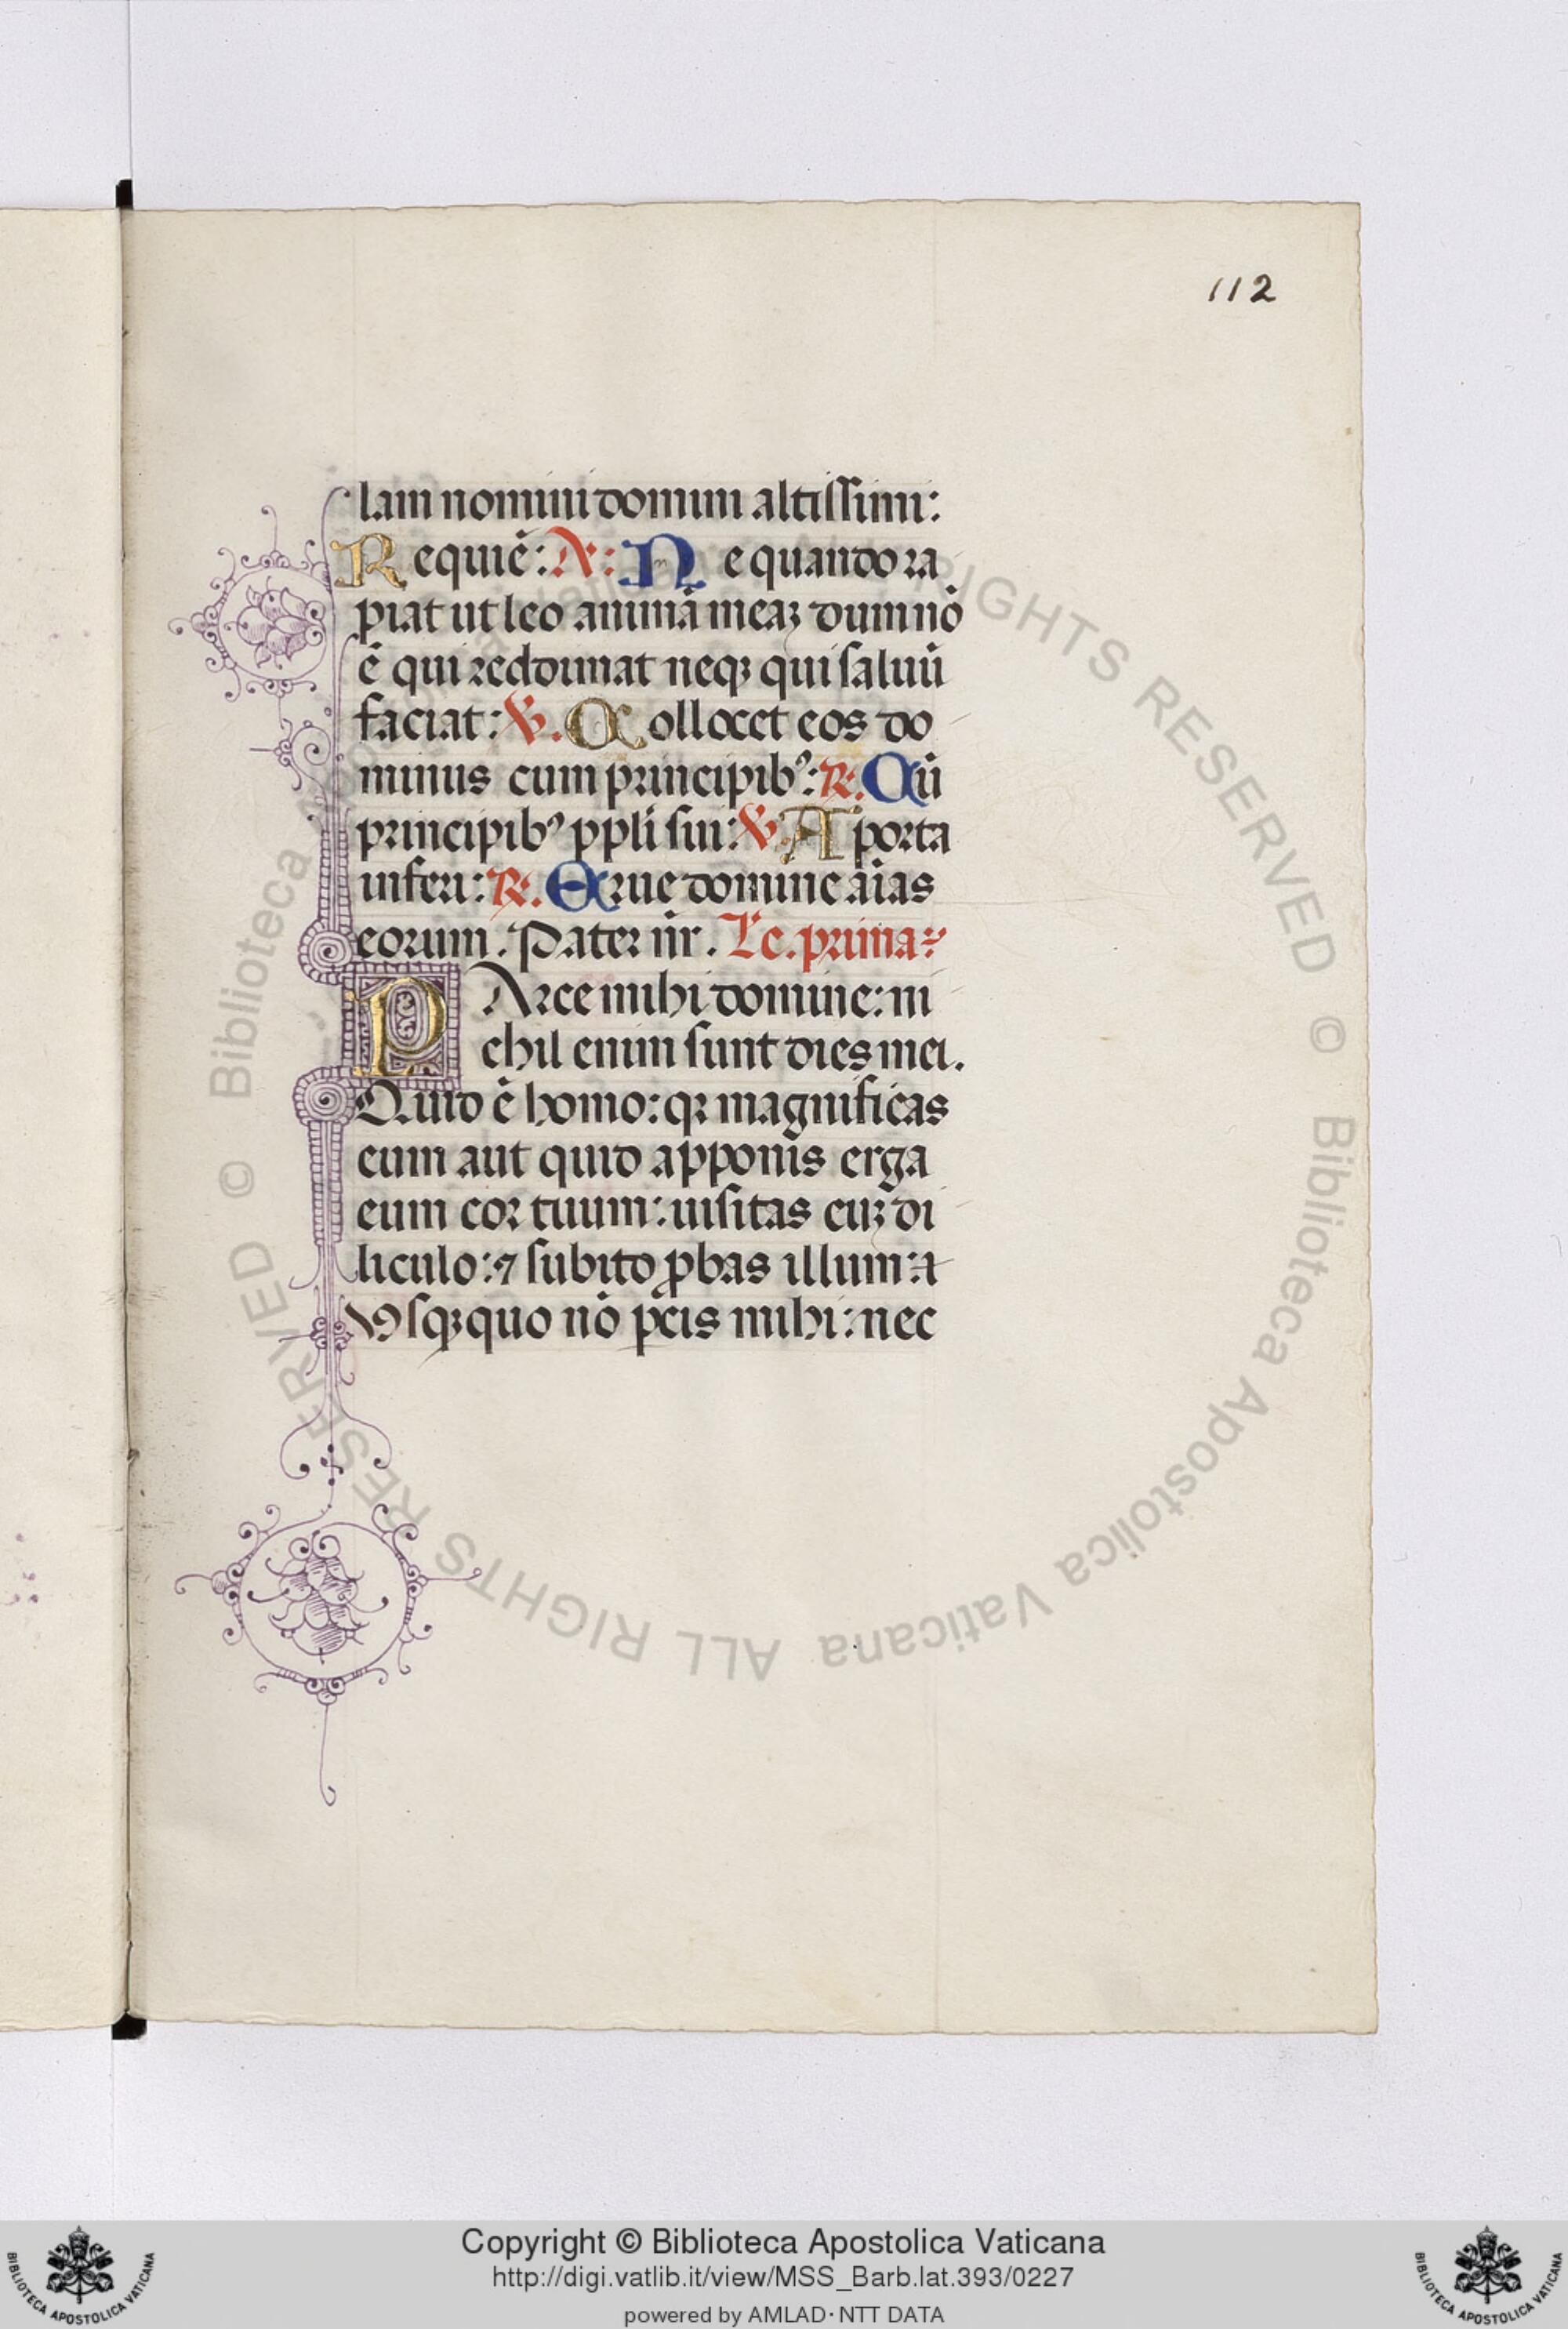 112
lam nomini domini altissimi:
Requiē: A: Ne quando ra
piat ut leo animā meaꝫ dum nō
ē qui redimat neqꝫ qui saluū
faciat: ℣. Collocet eos do
minus cum principibꝰ: ℞. Cū
principibꝰ ppl̄i sui: ℣. A porta
inferi: ℞. Erue domine aīas
eorum. Pater nr̄. Lc̄. prima:
PArce mihi domine: ni
chil enim sunt dies mei.
Quid ē homo: qꝛ magnificas
eum aut quid apponis erga
eum cor tuum: uisitas euꝫ di
liculo: ⁊ subito ꝓbas illum:
Usqꝫquo nō ꝑcis mihi: nec
© Biblioteca Apostolica Vaticana ALL RIGHTS RESERVED
© Biblioteca Apostolica Vaticana ALL RIGHTS RESERVED
Copyright © Biblioteca Apostolica Vaticana
http://digi.vatlib.it/view/MSS_Barb.lat.393/0227
powered by AMLAD·NTT DATA
BIBLIOTECA APOSTOLICA VATICANA
BIBLIOTECA APOSTOLICA VATICANA